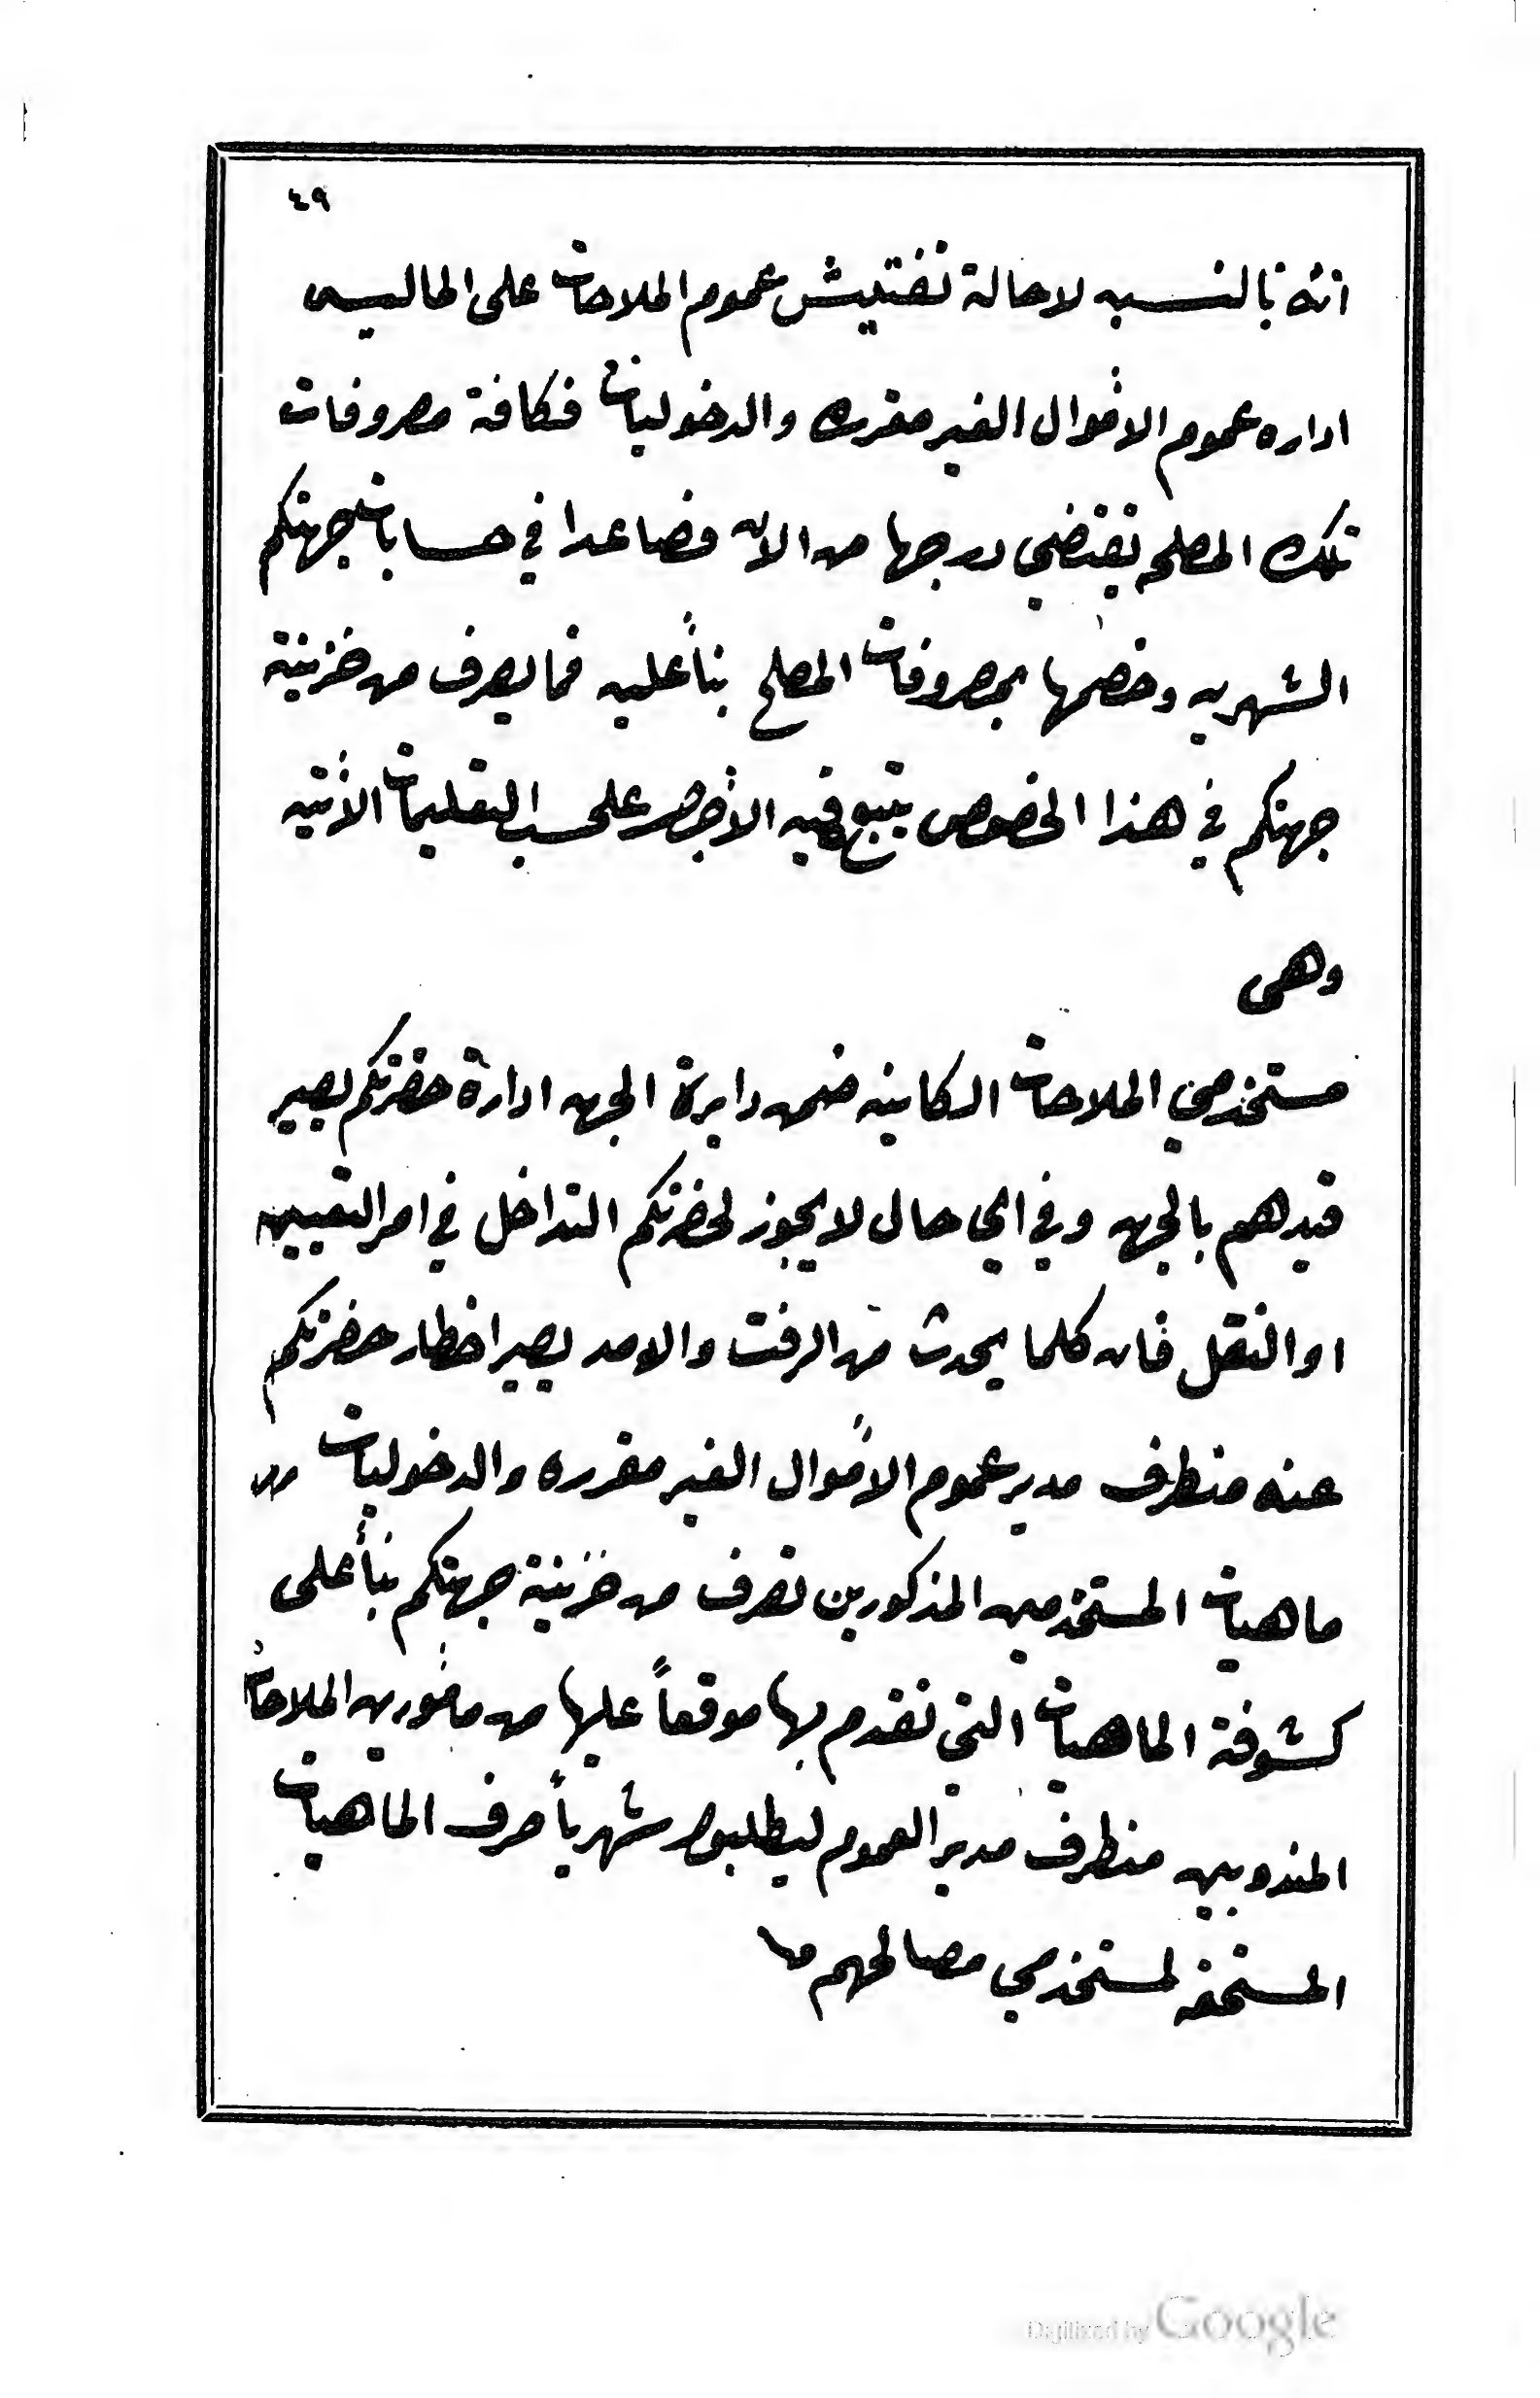 ٤٩
انه بالنسبه لاحالة تفتيش عموم الملاحات على
اداره عموم الاموال الغير مقرره والدخوليات فكافة مصروفات
تلك المصلحه يقتضي درجها من الان فصاعدا في حسابات جهتكم
الشهريه وخصمها بمصروفات المصلحه بناً عليه فما يصرف من خزينة
جهتكم في هذا الخصوص يتبع فيه الاجرى على حسب التعليمات الاتيه
وهى
مستخدمي الملاحات الكاينه ضمن دايرة الجهه ادارة حضرتكم يصير
قيدهم بالجهه وفي اي حال لا يجوز لحضرتكم التداخل في امر التعيين
او النقل فان كلما يحدث من الرفت والا مد يصير اخطار حضرتكم
عنه منطرف مدير عموم الاموال الغير مقرره والدخوليات
ماهيات المستخدمين المذكورين تصرف من خزينة جهتكم بناً على
كشوفة الماهيات التي تقدم بها موقعاً عليها من مامورين الملاحات
المندوبين منطرف مدير العموم ليطلبوا شهرياً صرف الماهيات
المستحقه لمستخدمي مصالحهم
Digitized by Google